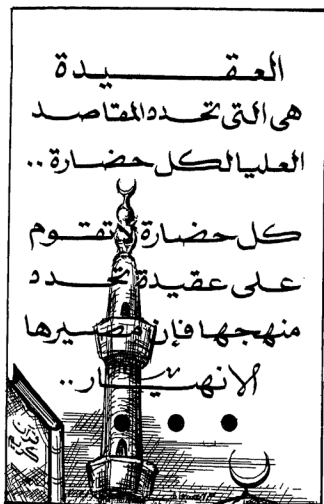 العقيدة
هى التى تحدد المقاصد
العليا لكل حضارة ..
كل حضارة لا تقوم
على عقيدة تحدد
منهجها فإن مصيرها
الانهيار ..